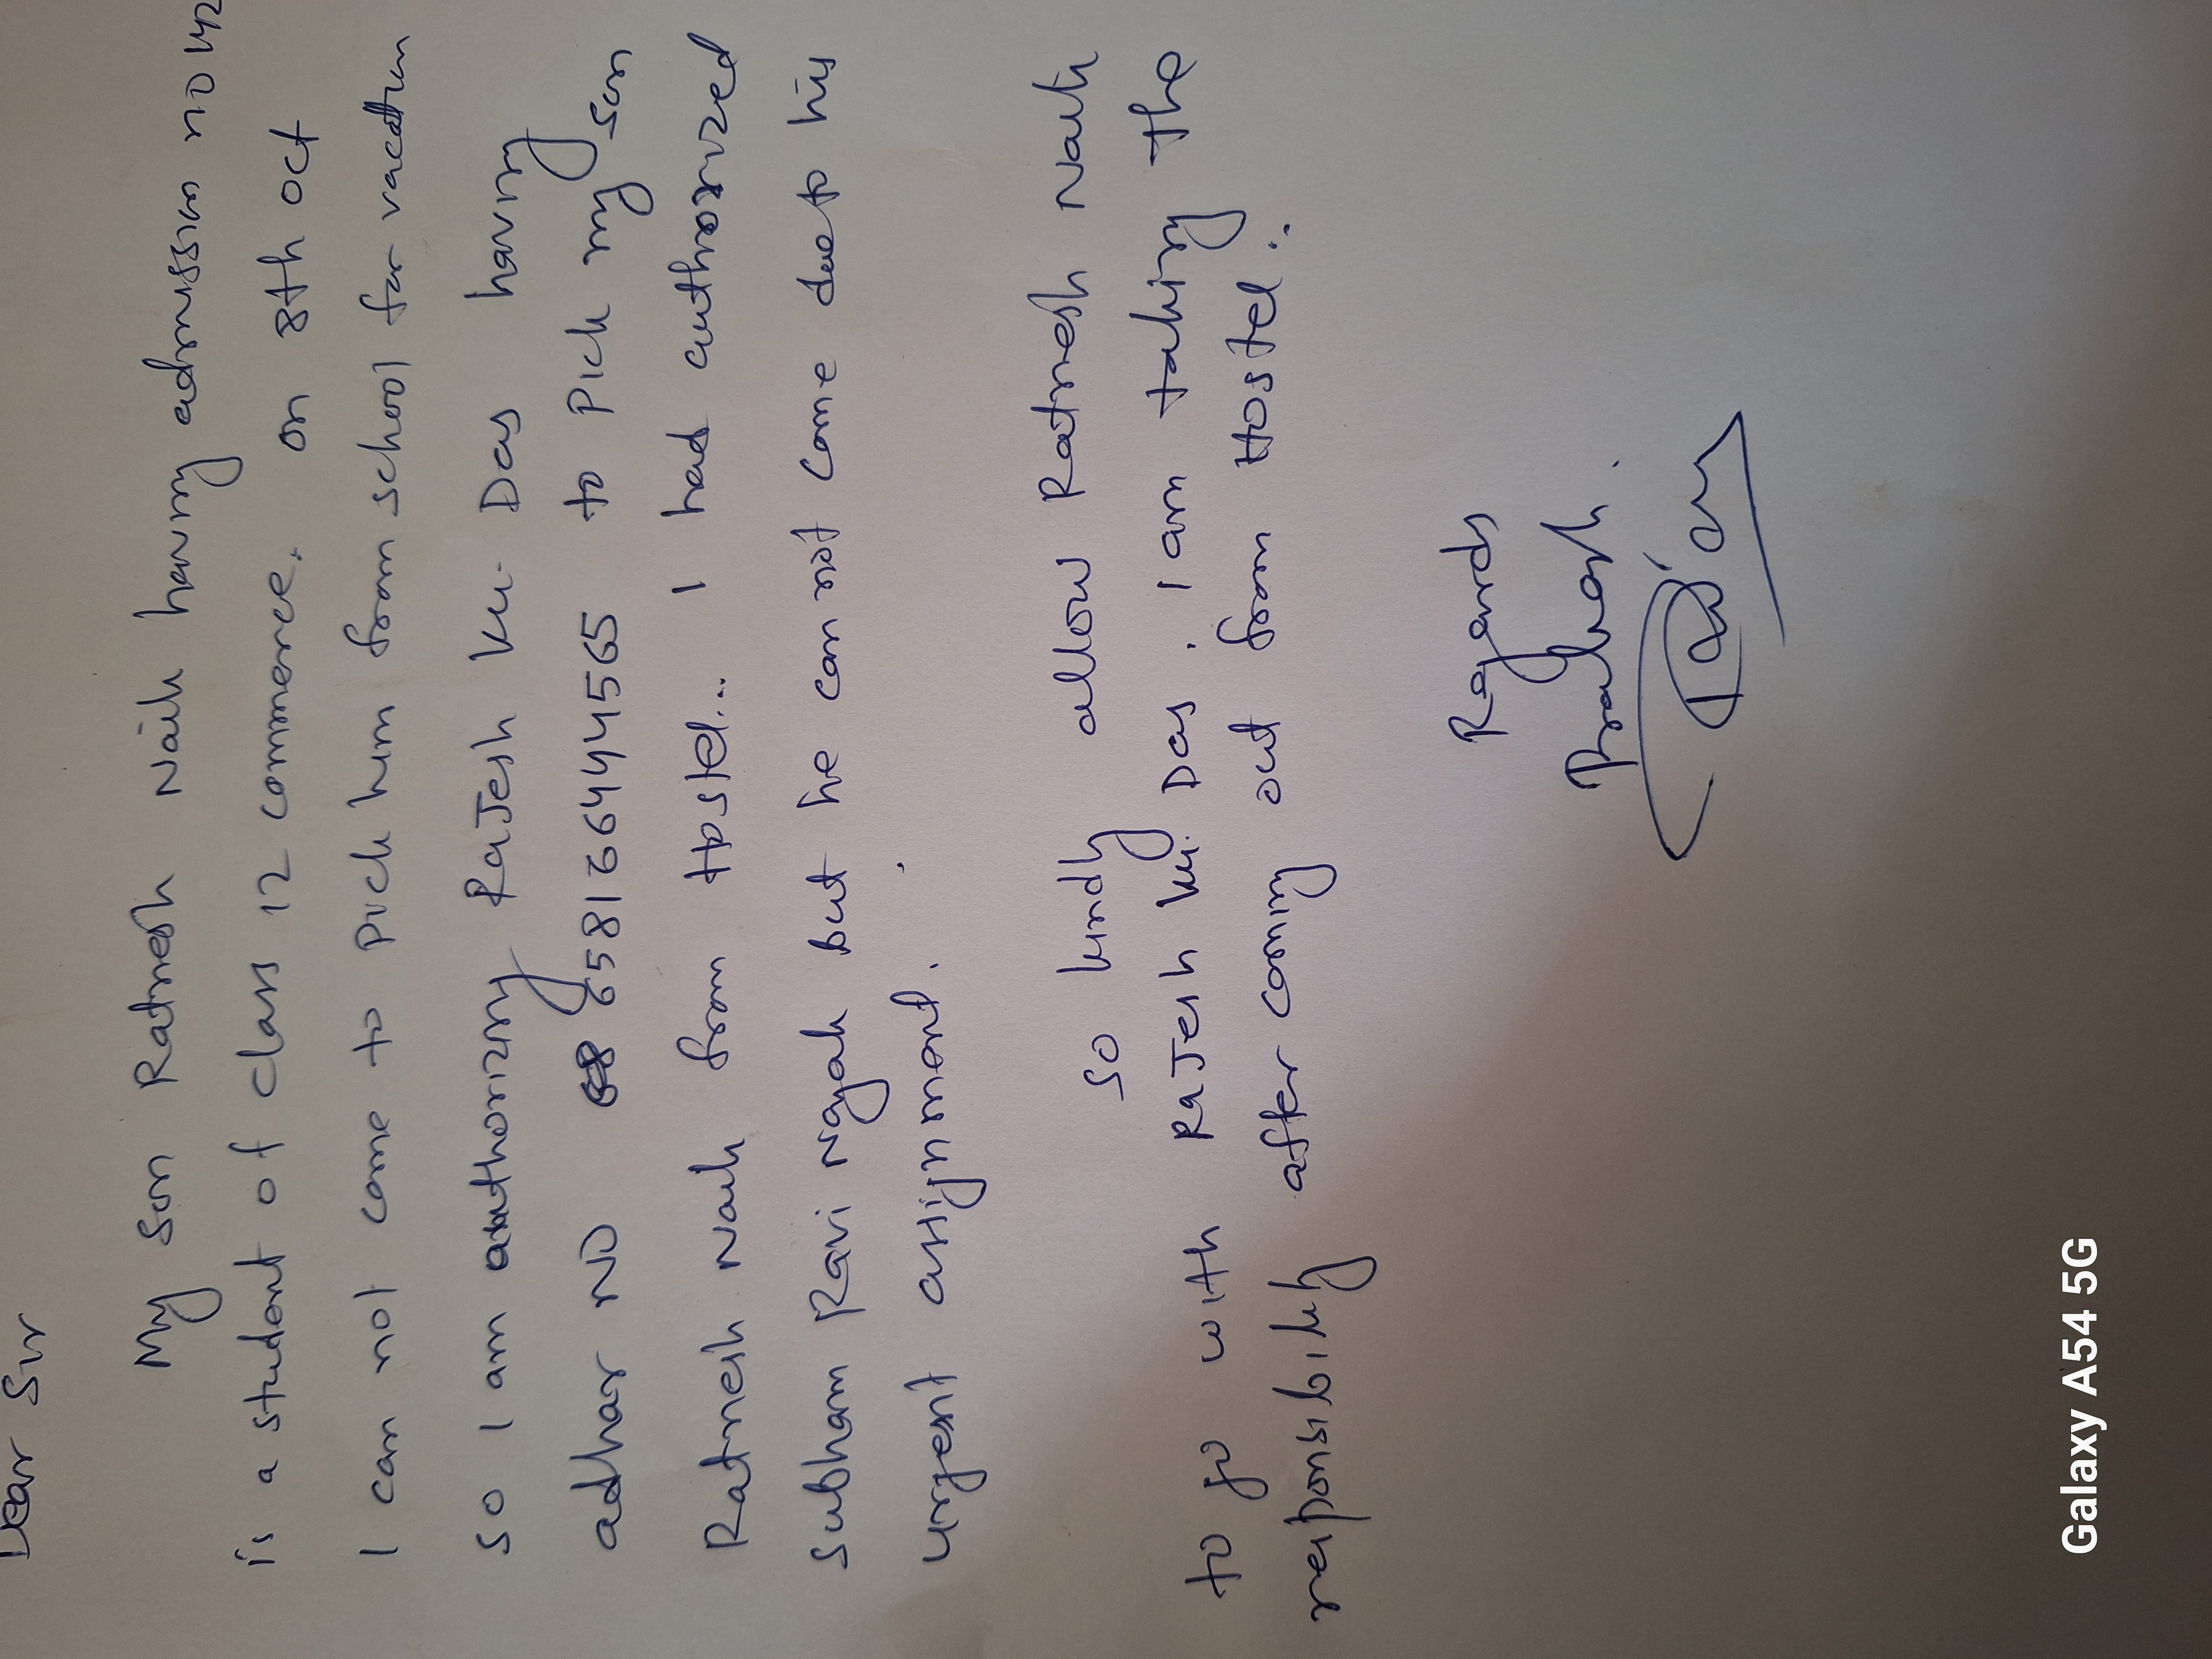 Dear Sir
My son Ratnesh Naik having admission no 142
is a student of class 12 commerce. on 8th oct
I can not come to pick him from school for vacation
so I am authorizing Rajesh Ku. Das having
adhar NO 658166444565 to pick my son
Ratnesh Naik from Hostel... I had authorized
Subham Ravi Nayak but he can not come due to his
urgent assignment.
so kindly allow Ratnesh Naik
to go with Rajesh Ku. Das. I am taking the
responsibility after coming out from Hostel..
Regards
Prakash.
Galaxy A54 5G